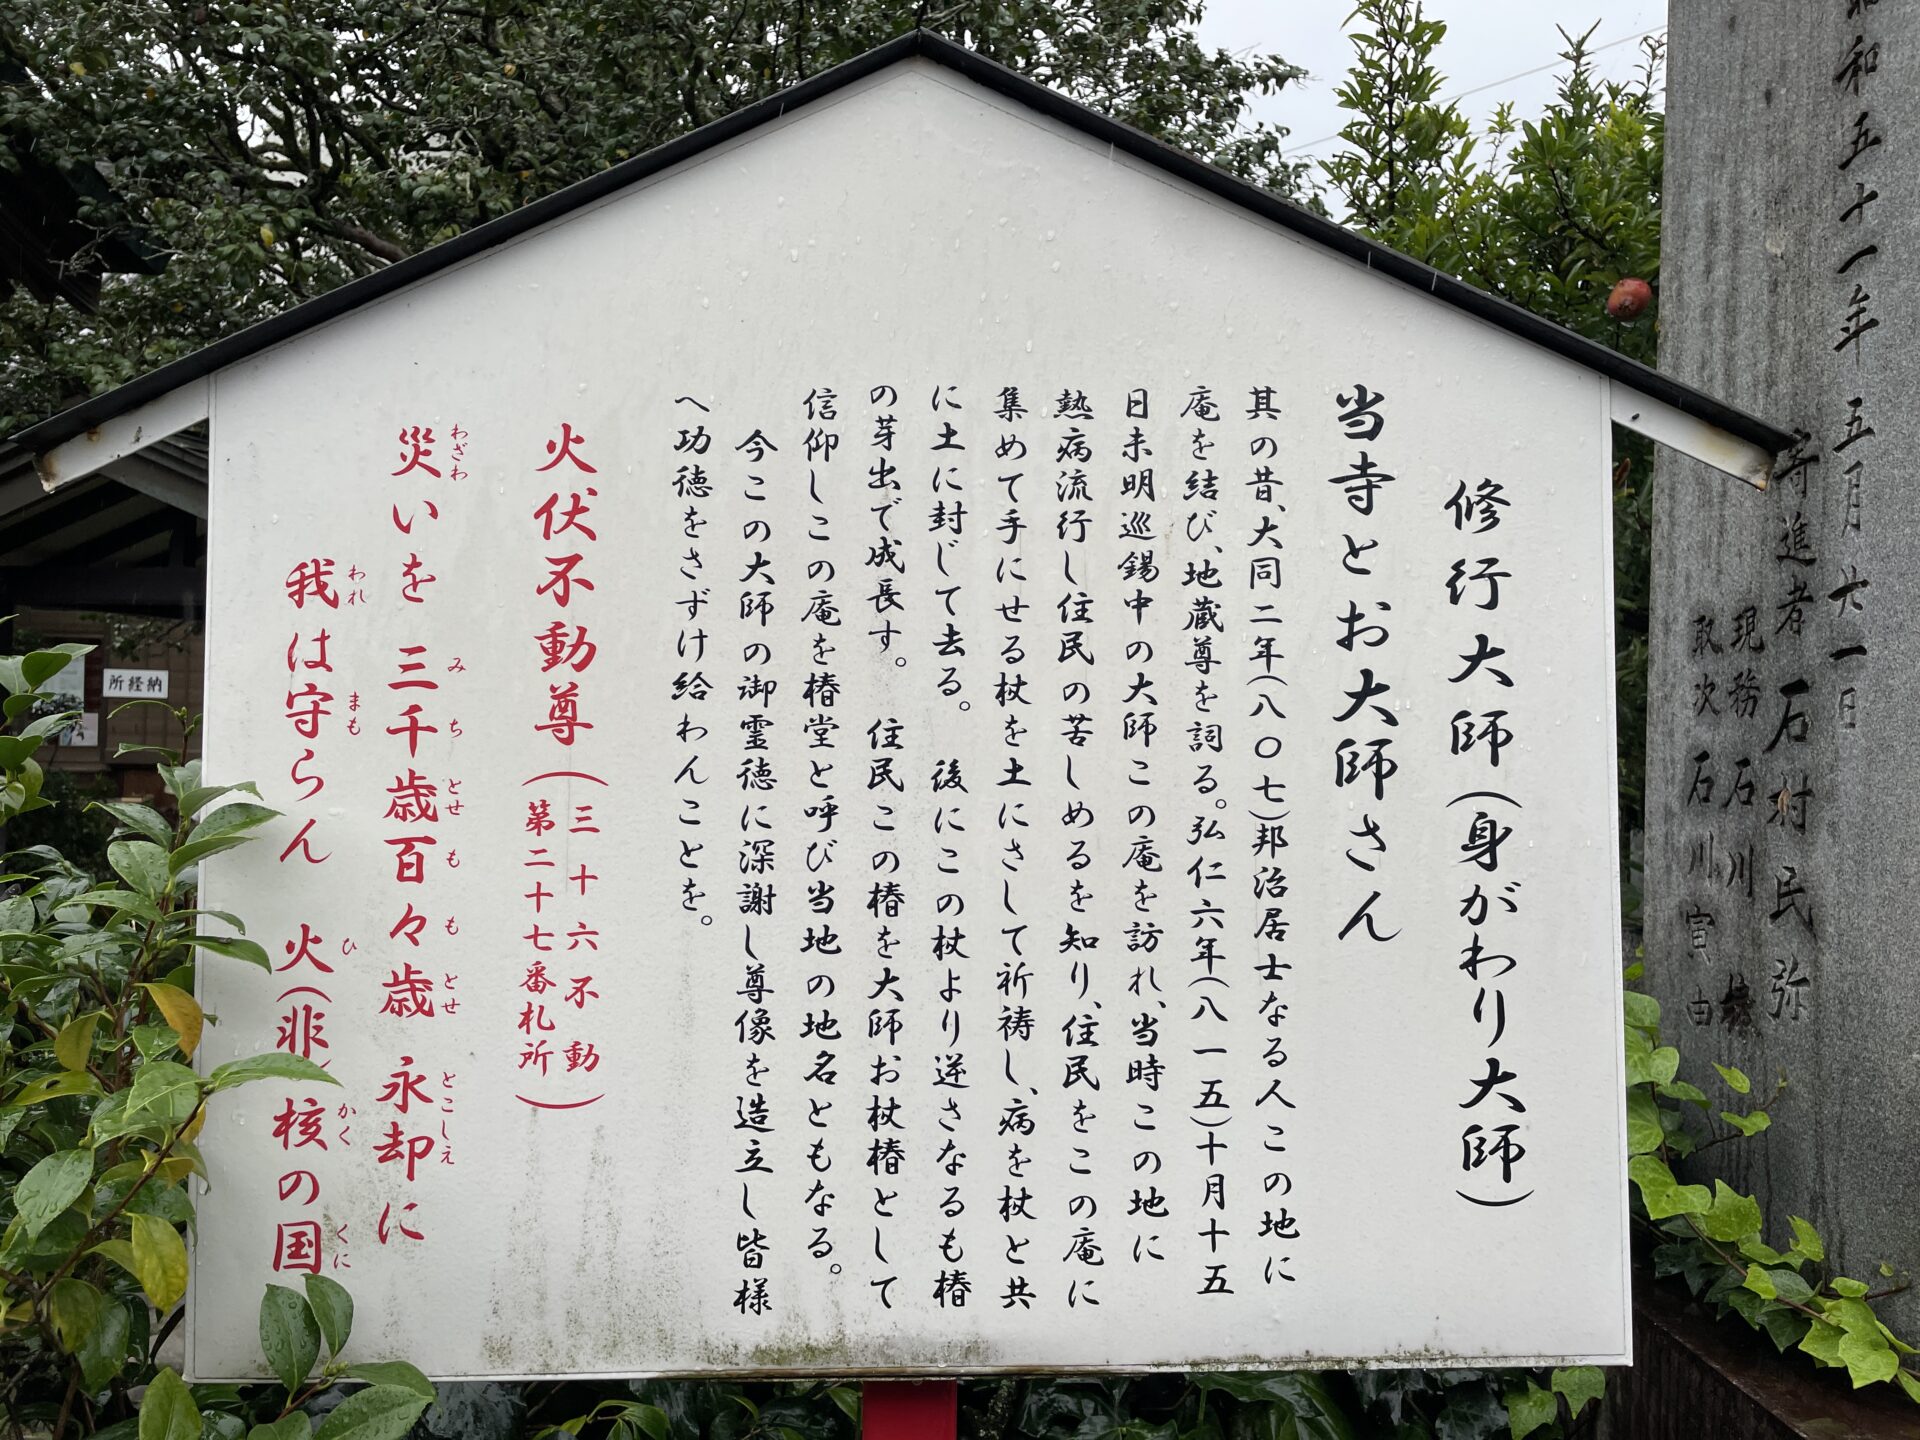 修行大師(身がわり大師)
当寺とお大師さん
其の昔、大同二年(八〇七)邦治居士なる人この地に
庵を結び、地蔵尊を詞る。弘仁六年(八一五)十月十五
日未明巡錫中の大師この庵を訪れ、当時この地に
熱病流行し住民の苦しめるを知り、住民をこの庵に
集めて手にせる杖を土にさして祈祷し、病を杖と共
に土に封じて去る。後にこの杖より逆さなるも椿
の芽出で成長す。住民この椿を大師お杖椿として
信仰しこの庵を椿堂と呼び当地の地名ともなる。
今この大師の御霊徳に深謝し尊像を造立し皆様
へ功徳をさずけ給わんことを。
火伏不動尊(三十六不動
第二十七番札所)
災いを 三千歳百々歳 永却に
わざわ み ち とせ も も とせ とこしえ
我は守らん 火(非)核の国
われ まも ひ かく くに
和五十一年五月六一日
寄進者 石村民弥
現務 石川
取次 石川寅由
所経納